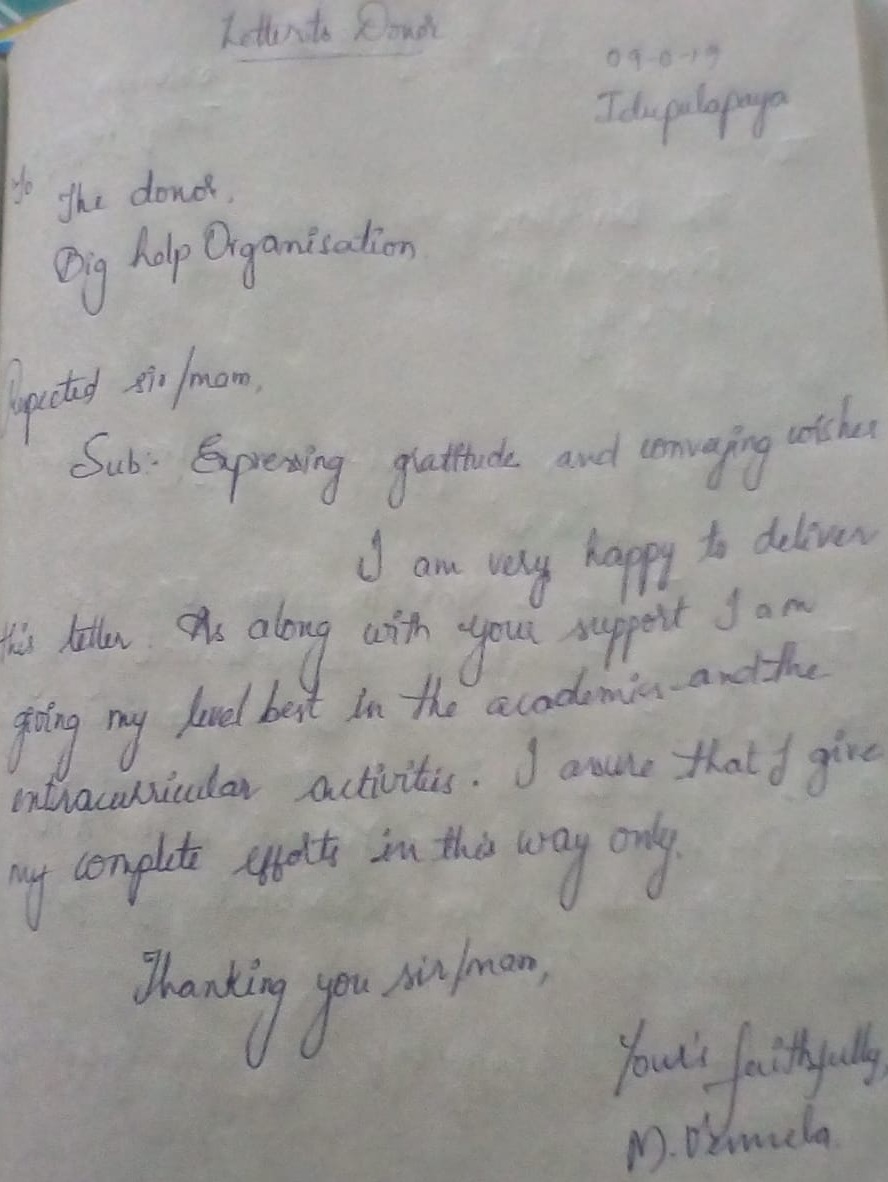 Letter to Donor
Idupulapaya
To The donor,
Big help Organisation
Respected sir/mam,
Sub:- Expressing gratitude and convaying wishes
I am very happy to deliver
this letter. As along with your support I am
giving my level best in the academics and the
extracurricular activities. I assure that I give
my complete efforts in this way only.
Thanking you sir/mam,
Your's faithfully,
M.